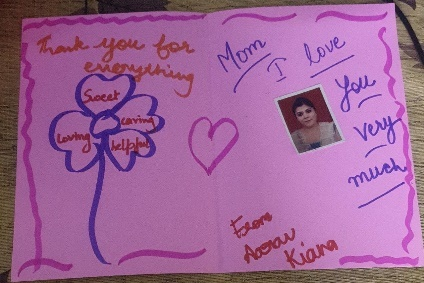 Thank you for
everything
Sweet
caring
loving
helpful
Mom
I love
You
very
much
From
Aarav
Kiara